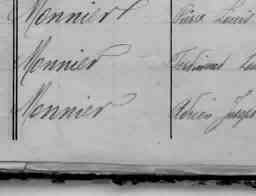 Monnier Pierre Louis
Monnier Ferdinand
Monnier Adrien Joseph